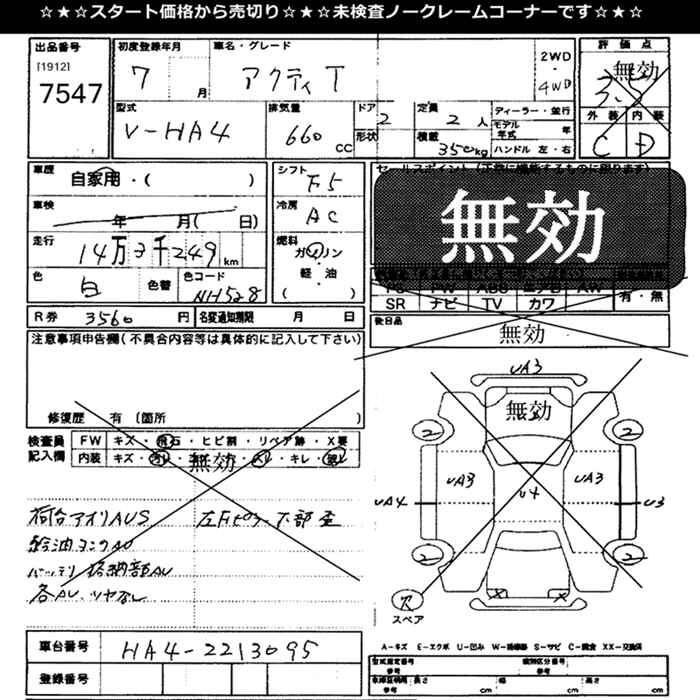 ☆★☆スタート価格から売切り☆★☆未検査ノークレームコーナーです☆★☆
出品番号 初度登録年月 車名・グレード 2WD 評価点
[1912] 7 月 アクティT 4WD 無効 3.5
7547 外装 内装
型式 排気量 ドア 2 定員 2 人 ディーラー・並行
V-HA4 660 CC 形状 積載 350kg モデル年式 年 C D
ハンドル 左・右
車歴 自家用・( ) シフト F5 セールスポイント(正常に機能するものに限ります)
車検 年 月( 日) 冷房 AC 無効
走行 14万3千249km 燃料 ガソリン・軽・油 ( )
色 白 色替 色コード NH528
PS PW ABS エアB AW 有・無
SR ナビ TV カワ
R券 3560 円 名変通知期限 月 日 後日品 無効
注意事項申告欄(不具合内容等は具体的に記入して下さい)
修復歴 有 (箇所 )
検査員 FW キズ・飛石・ヒビ割・リペア跡・X要
記入欄 内装 キズ・汚れ・ 無効 ・キレ・
荷台アオリAUS 左Fピラー下部歪
給油コックAU
バッテリ格納部AU
各AU、ツヤなし
UA3
無効
2 2
UA3 UA3
UA4 U4 U3
2 2
X X
ス スペア
A-キズ E-エクボ U-凹み W-補修跡 S-サビ C-腐食 XX-交換済
車台番号 HA4-2213095
登録番号
型式指定番号 参考 類別区分番号 参考
車庫証明用 参考 長さ cm 幅 cm 高さ cm